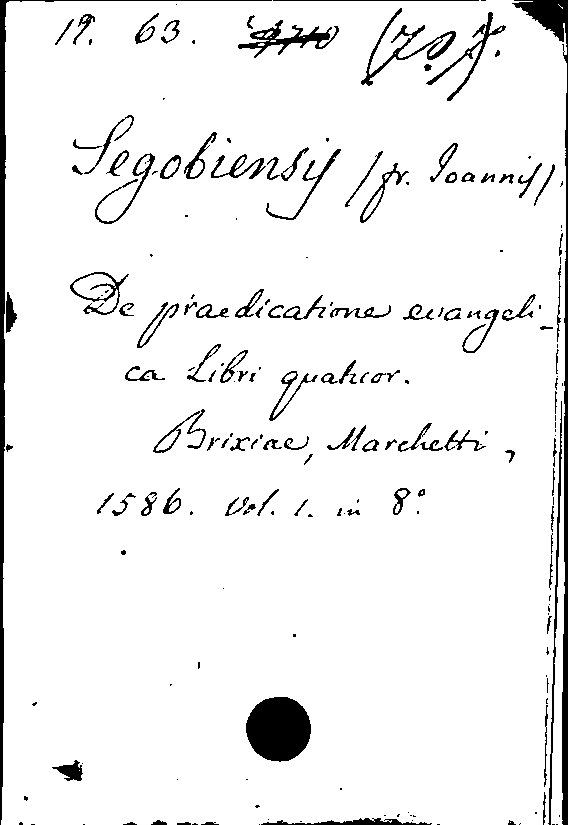 19. 63.
Segobiensis (fr. Ioannis).
De praedicatione evangeli-
ca Libri quatuor.
Brixiae, Marchetti,
1586. Vol. 1. in 8°.